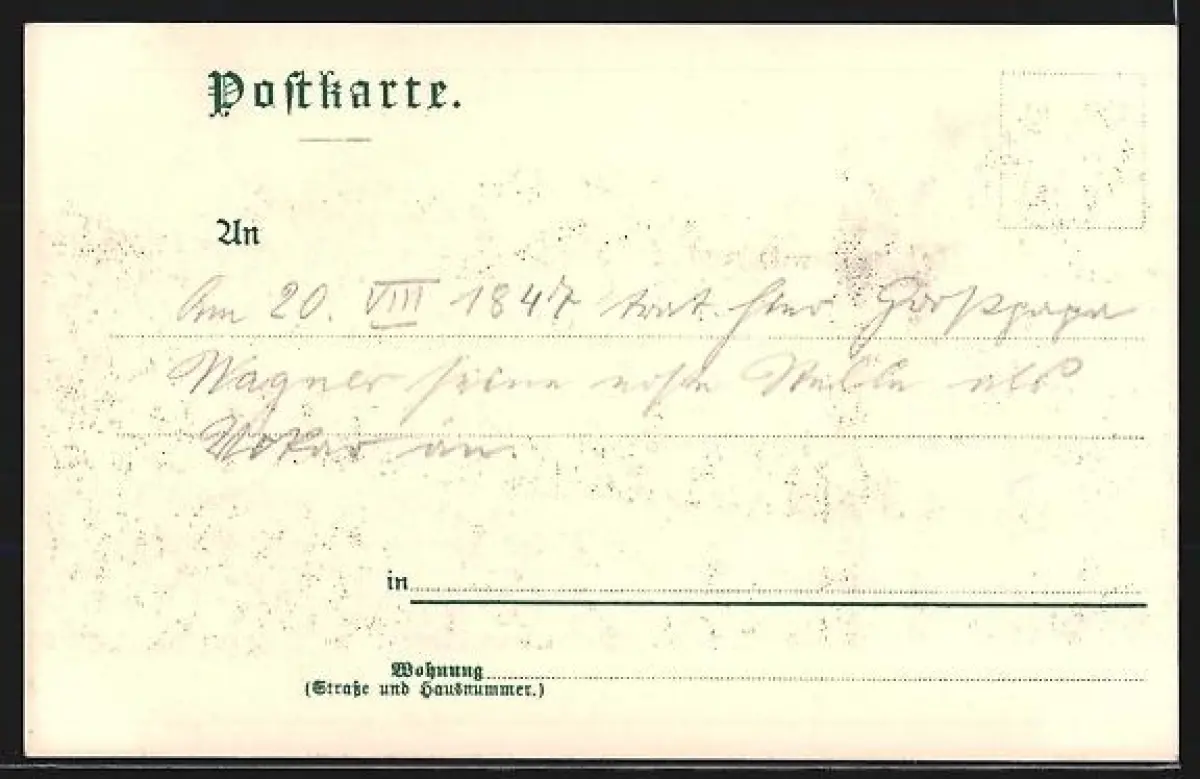 Postkarte.
An
Am 20. VIII 1847 trat hier Großpapa
Wagner seine erste Stelle als
Notar an.
in
Wohnung
(Straße und Hausnummer.)